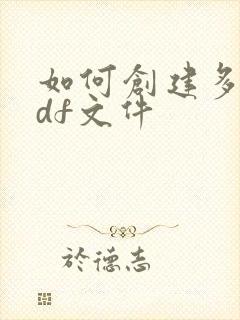 如何創建多
df文件
於德志